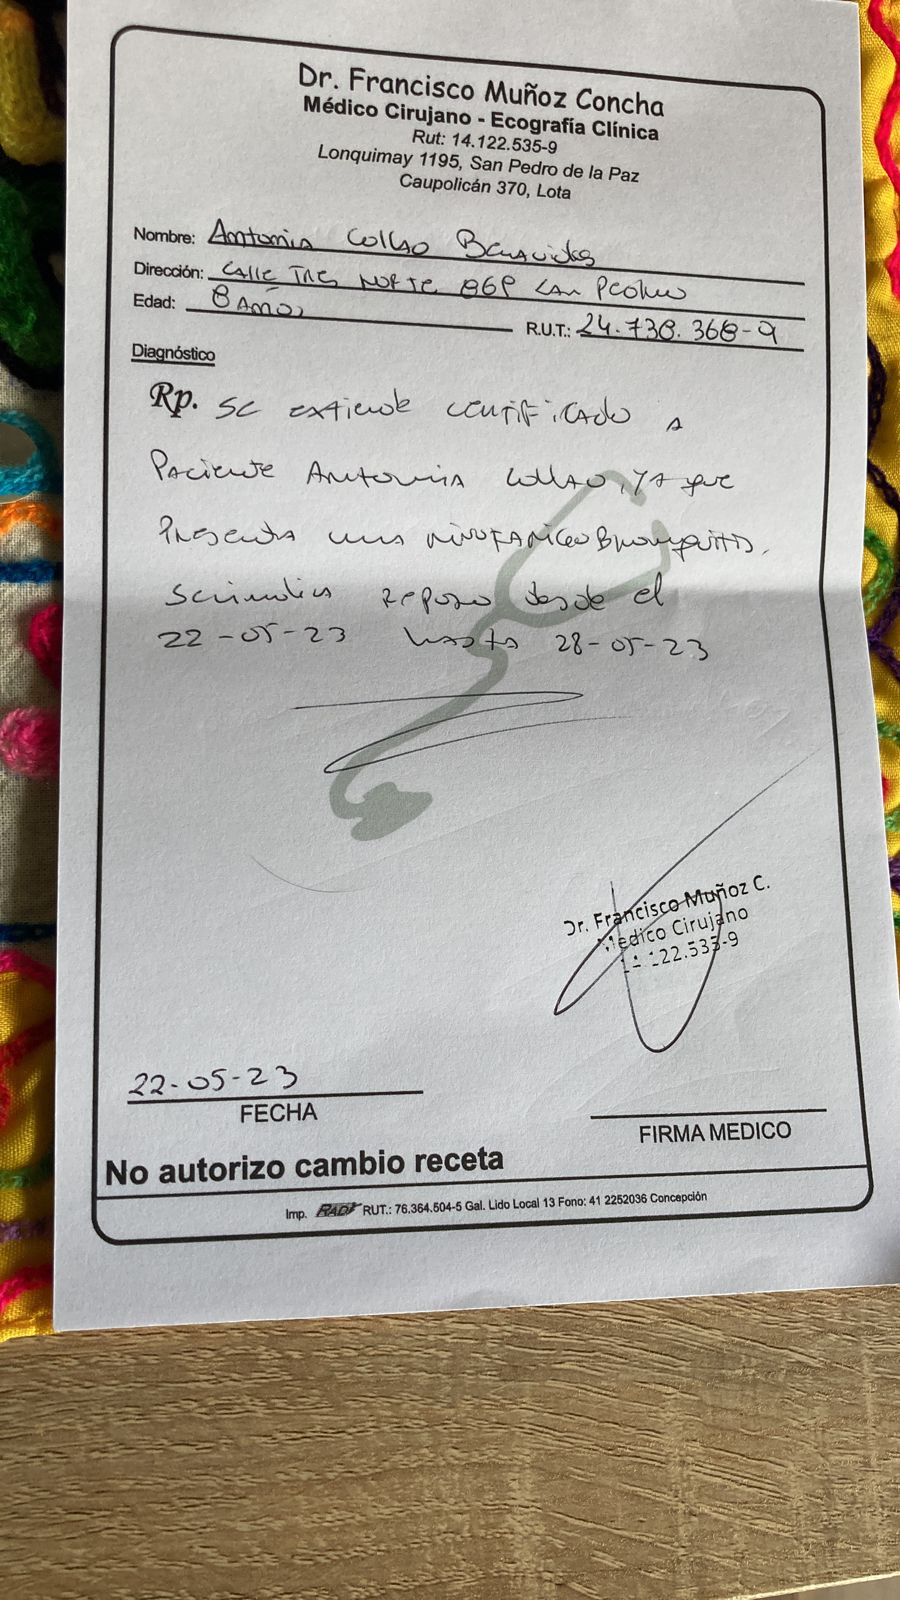 Dr. Francisco Muñoz Concha
Médico Cirujano - Ecografía Clínica
Rut: 14.122.535-9
Lonquimay 1195, San Pedro de la Paz
Caupolicán 370, Lota
Nombre: Antonia Collao Benavides
Dirección: Calle Tres Norte 869 San Pedro
Edad: 8 Años
R.U.T.: 24.738.368-9
Diagnóstico
Rp. Se extiende certificado a
Paciente Antonia Collao, ya que
Presenta una Rinofaringobronquitis.
Se indica reposo desde el
22-05-23 hasta 28-05-23
Dr. Francisco Muñoz C.
Médico Cirujano
14.122.535-9
22-05-23
FECHA
FIRMA MEDICO
No autorizo cambio receta
Imp. RADY RUT.: 76.364.504-5 Gal. Lido Local 13 Fono: 41 2252036 Concepción